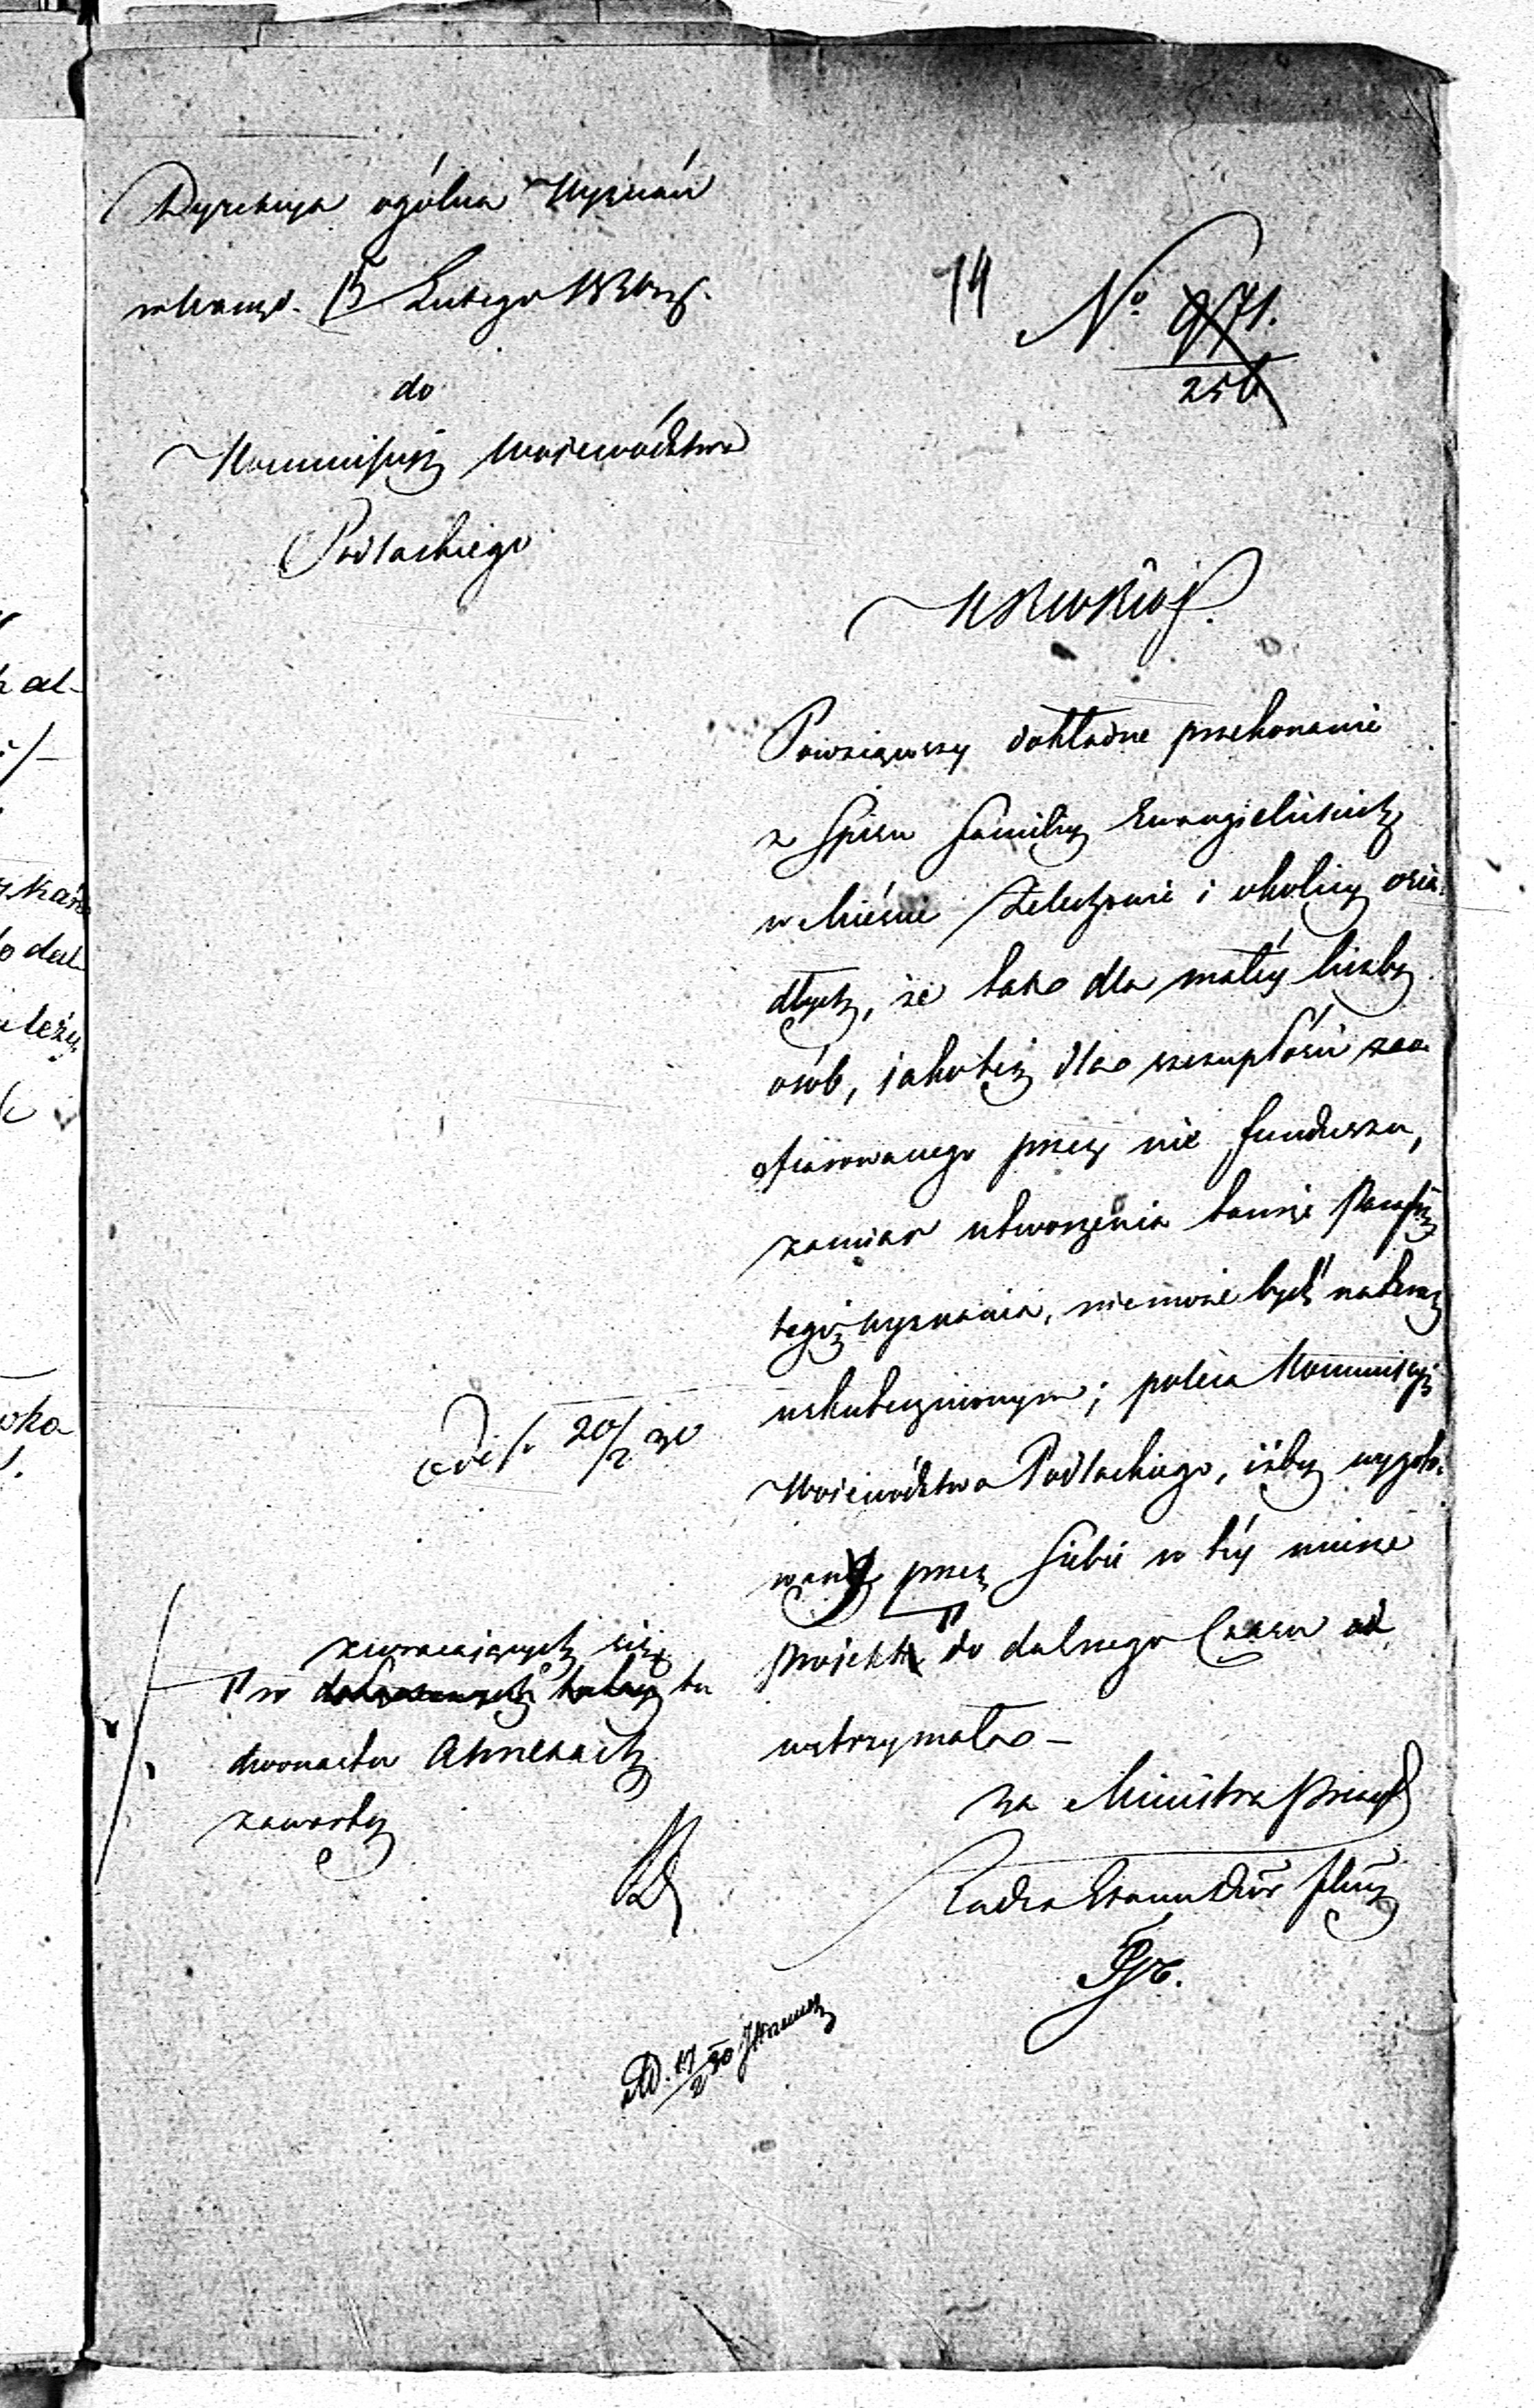 Dyrekcya ogólna Wyznań
w Warsz. 13 Lutego 1830 r.
do
Kommissyi Województwa
Podlaskiego
14 No 971.
256
KRWRiOP.
Powziąwszy dokładne przekonanie
z Spisu familij Ewangielickich
w Mieście Żelechowie i okolicy osia-
dłych, że tak dla małéy liczby
osób, jakoteż dla szczupłości zao-
fiarowanego przez nie funduszu,
zamiar utworzenia tamże Parafii
tegoż wyznania, niemoże bydź natenczas
uskutecznionym; poleca Kommissyi
Województwa Podlaskiego, iżby wygoto-
wany przez Siebie w téy mierze
projekt do dalszego Czasu
wstrzymała –
za Ministra Prezyd
Radca Stanu Dir Jlny
20/2 30
zwracaiących się
w tu
dwunastu Annexach
zawarty
17/2 30
kal-
o dal
leży